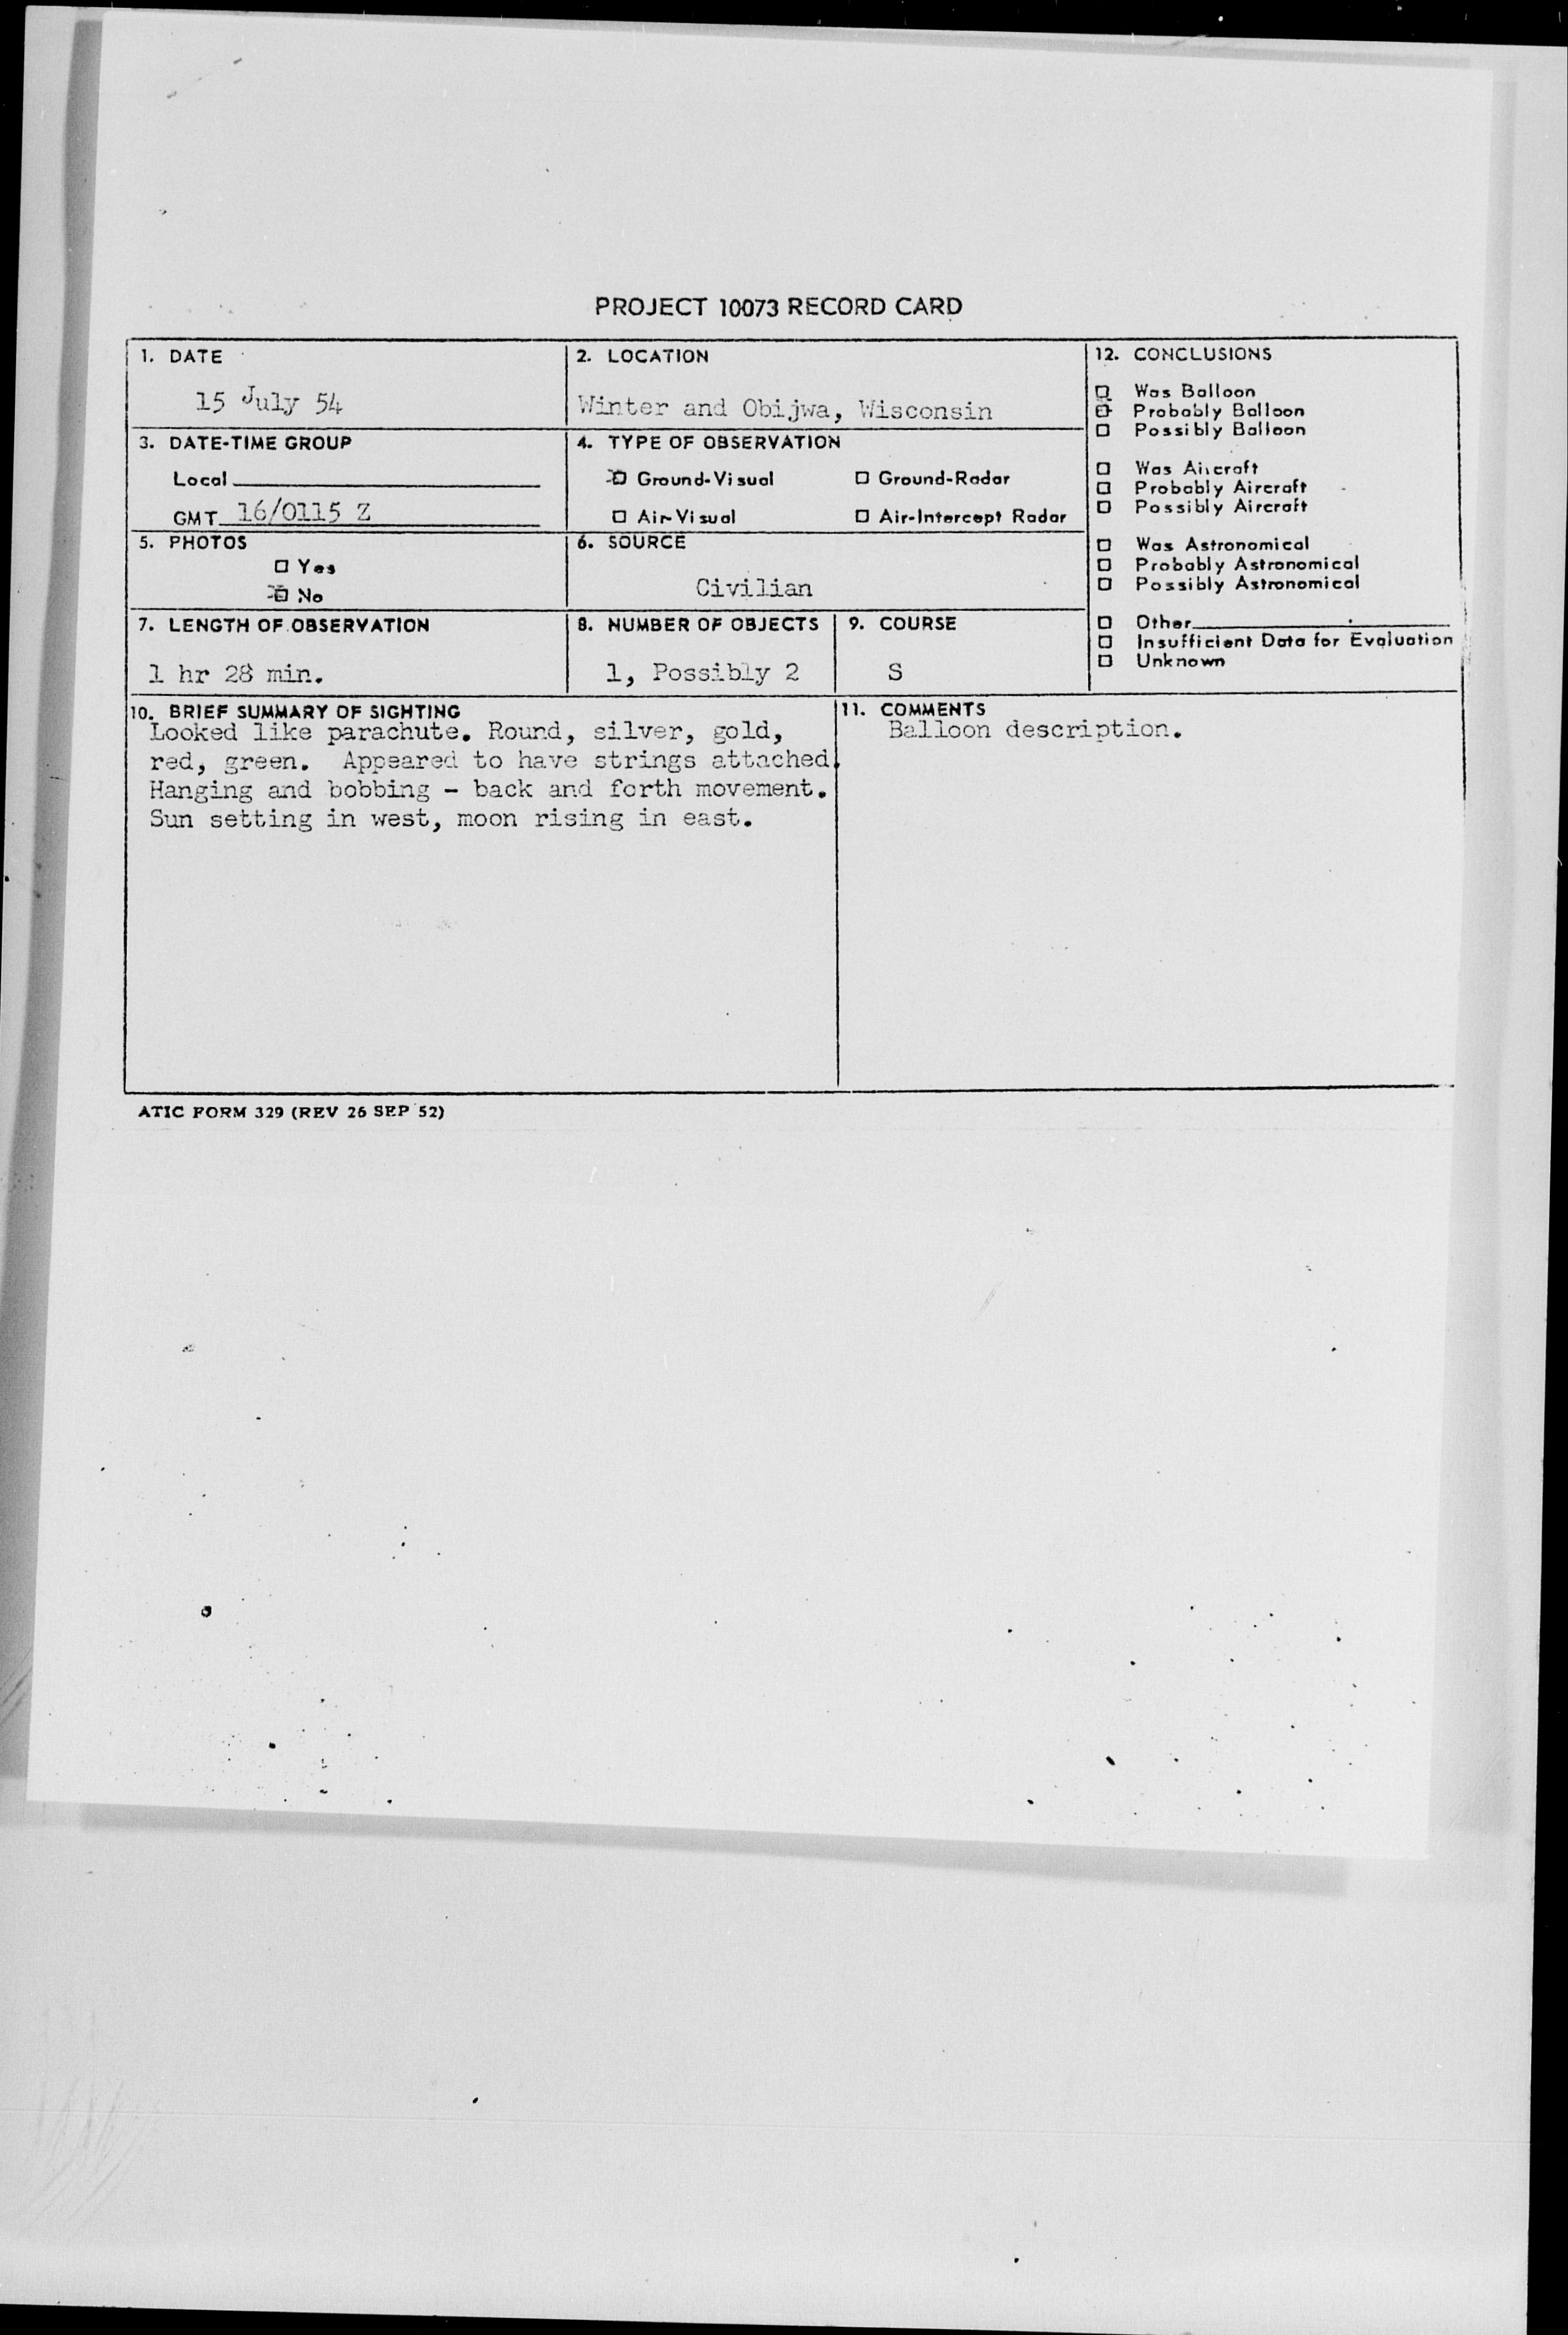 PROJECT 10073 RECORD CARD
1. DATE
15 July 54
2. LOCATION
Winter and Obijwa, Wisconsin
3. DATE-TIME GROUP
Local
GMT 16/0115 Z
4. TYPE OF OBSERVATION
Ground-Visual
Ground-Radar
Air-Visual
Air-Intercept Radar
5. PHOTOS
Yes
No
6. SOURCE
Civilian
7. LENGTH OF OBSERVATION
1 hr 28 min.
8. NUMBER OF OBJECTS
1, Possibly 2
9. COURSE
S
12. CONCLUSIONS
Was Balloon
Probably Balloon
Possibly Balloon
Was Aircraft
Probably Aircraft
Possibly Aircraft
Was Astronomical
Probably Astronomical
Possibly Astronomical
Other
Insufficient Data for Evaluation
Unknown
10. BRIEF SUMMARY OF SIGHTING
Looked like parachute. Round, silver, gold,
red, green. Appeared to have strings attached.
Hanging and bobbing - back and forth movement.
Sun setting in west, moon rising in east.
11. COMMENTS
Balloon description.
ATIC FORM 329 (REV 26 SEP 52)